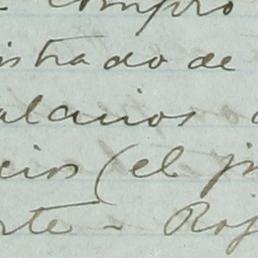 compro
istrado de
alarios
cios (el ju
rte - Roj